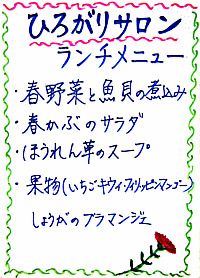 ひろがりサロン
ランチメニュー
・春野菜と魚貝の煮込み
・春かぶのサラダ
・ほうれん草のスープ
・果物(いちごキウィ・フィリッピンマンゴー)
しょうがのブラマンジェ